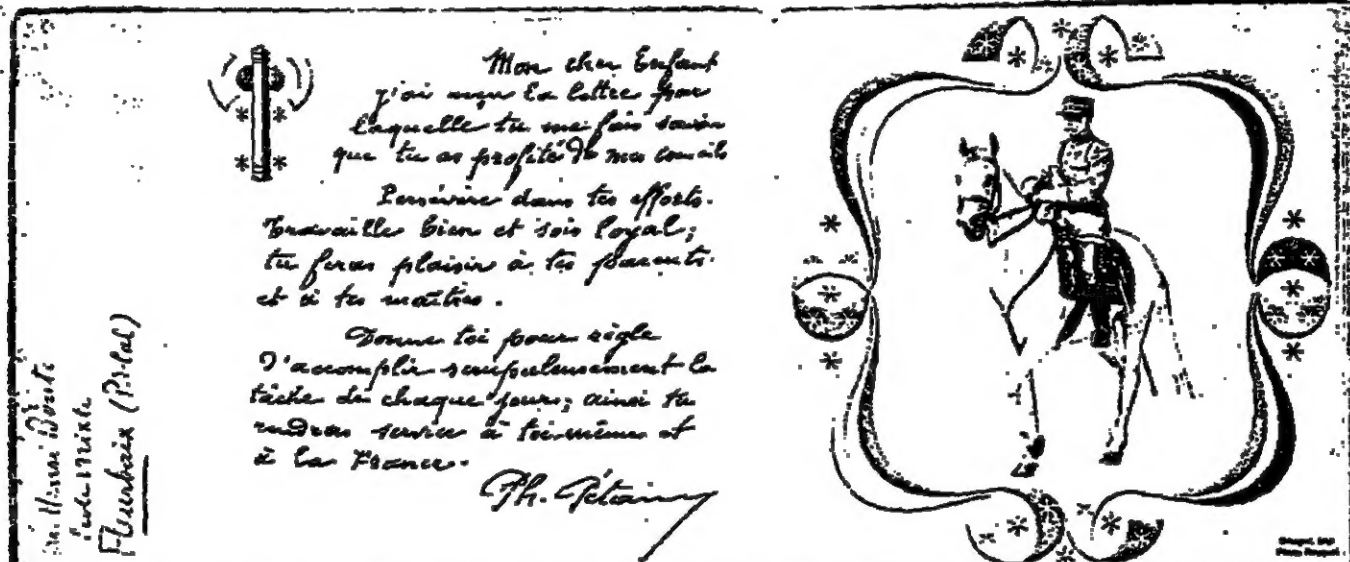 Mon cher Enfant
j'ai reçu la lettre par
laquelle tu me fais savoir
que tu as profité de mes conseils
Persévère dans tes efforts.
Travaille bien et sois loyal;
tu feras plaisir à tes parents
et à tes maîtres.
Donne toi pour règle
d'accomplir scrupuleusement la
tâche de chaque jour; ainsi tu
rendras service à toi-même et
à la France.
Ph. Pétain
Henri
Ecole mixte
Fleurbaix (P.d.Cal)